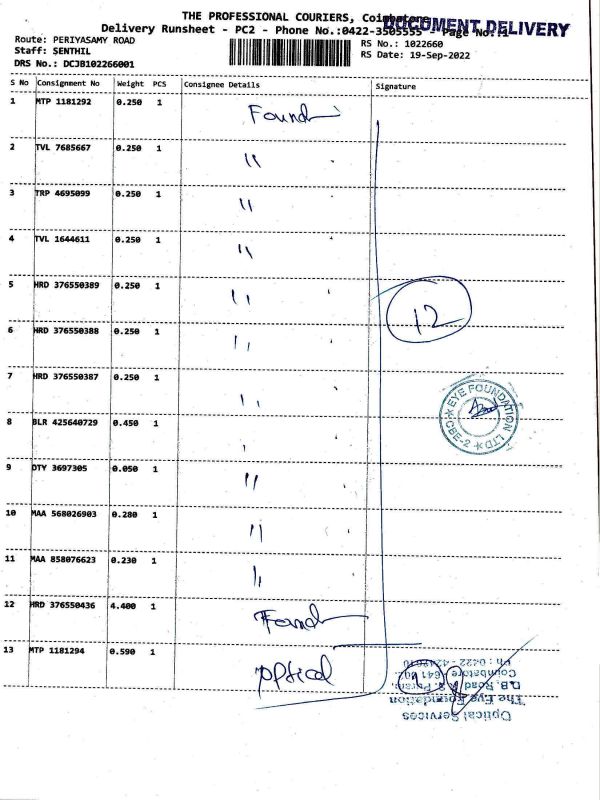 THE PROFESSIONAL COURIERS, Coimbatore
DOCUMENT DELIVERY
Delivery Runsheet - PC2 - Phone No.:0422-3505555 - Page No.:1
Route: PERIYASAMY ROAD
RS No.: 1022660
Staff: SENTHIL
RS Date: 19-Sep-2022
DRS No.: DCJB102266001
S No Consignment No Weight PCS Consignee Details Signature
1 MTP 1181292 0.250 1 Found
2 TVL 7685667 0.250 1 "
3 TRP 4695099 0.250 1 "
4 TVL 1644611 0.250 1 "
5 HRD 376550389 0.250 1 "
12
6 HRD 376550388 0.250 1 "
7 HRD 376550387 0.250 1 "
EYE FOUNDATION LTD CBE-2
8 BLR 425640729 0.450 1 "
9 DTY 3697305 0.050 1 "
10 MAA 568026903 0.280 1 "
11 MAA 858076623 0.230 1 "
12 HRD 376550436 4.400 1 Found
13 MTP 1181294 0.590 1 Optical
1
Optical Services
The Eye Foundation
D.B. Road, R. S. Puram,
Coimbatore - 641
Ph : 0422 -